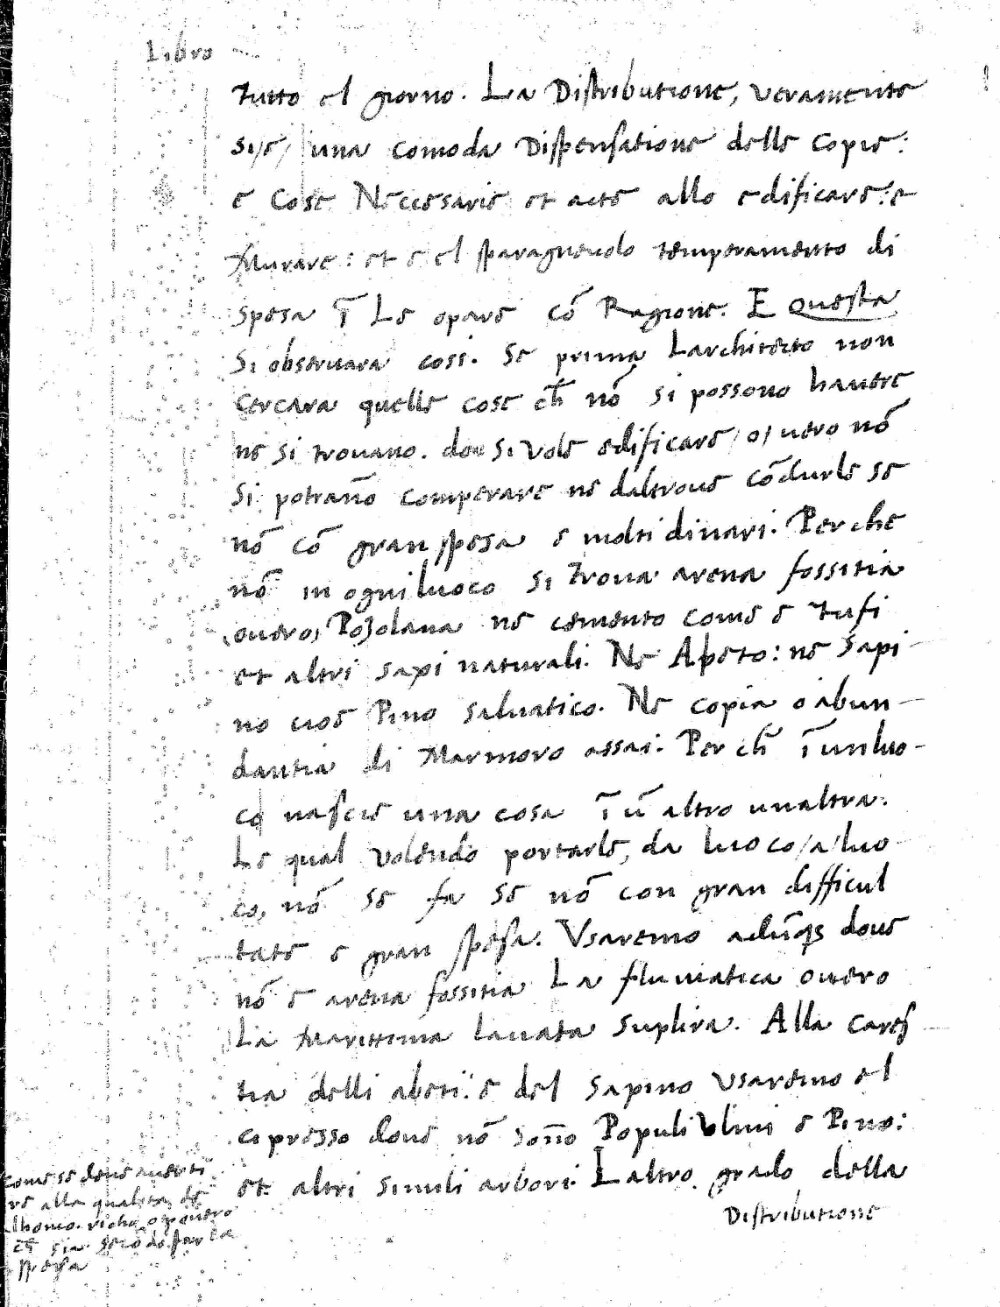 Libro
tutto el giorno. La Distributione, veramente
si/e/ una comoda Dispensatione delle copie:
e Cose Necessarie et acte allo edificare: e
Murare: et e el sparagneuolo temperamento di
spesa ī Le opare cō Ragione. E Questa
si obseruara cosi. Se prima Larchitecto non
cercara quelle cose ch̄ nō si possono hauere
ne si trouano. doue si vole edificare /o/ vero nō
si potrañо comperare ne daltroue cōdurle se
nō cō gran spesa e molti dinari. Perche
nō in ogni luoco si troua arena fossitia
ouero, Pozolana ne cemento come e tufi
et altri saxi naturali. Ne Apeto: ne sapi
no cioe Pino saluatico. Ne copia o abun-
dantia di Marmoro assai. Per ch̄ ī un luo-
co nascie una cosa ī ū altro unaltra.
Le qual volendo portarle, da luoco /a/ luo
co, nō se fa se nō con gran difficul
tate e gran spesa. Vsaremo adūqs doue
nō e arena fossitia La flumatica ouero
La Marittima lauata suplira. Alla cares
tia delli abeti: e del sapino vsaremo el
cipresso doue nō soño Populi Vlmi e Pino:
et altri simili arbori. Laltro grado della
Distributione
Come se deue auerti
re alla qualita de
lhomo. richo o pouero
ch̄ sia secōdo far la
spesa